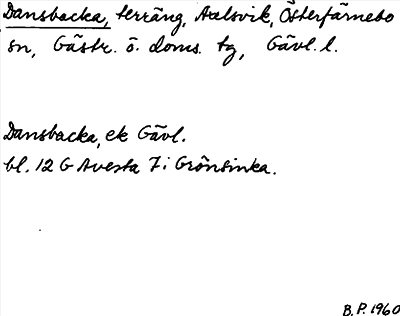 Dansbacka, terräng, Axelsvik, Österfärnebo
sn, Gästr. ö. doms. tg, Gävl. l.
Dansbacka, ek Gävl.
bl. 12 G Avesta 7 i Grönsinka.
B. P. 1960